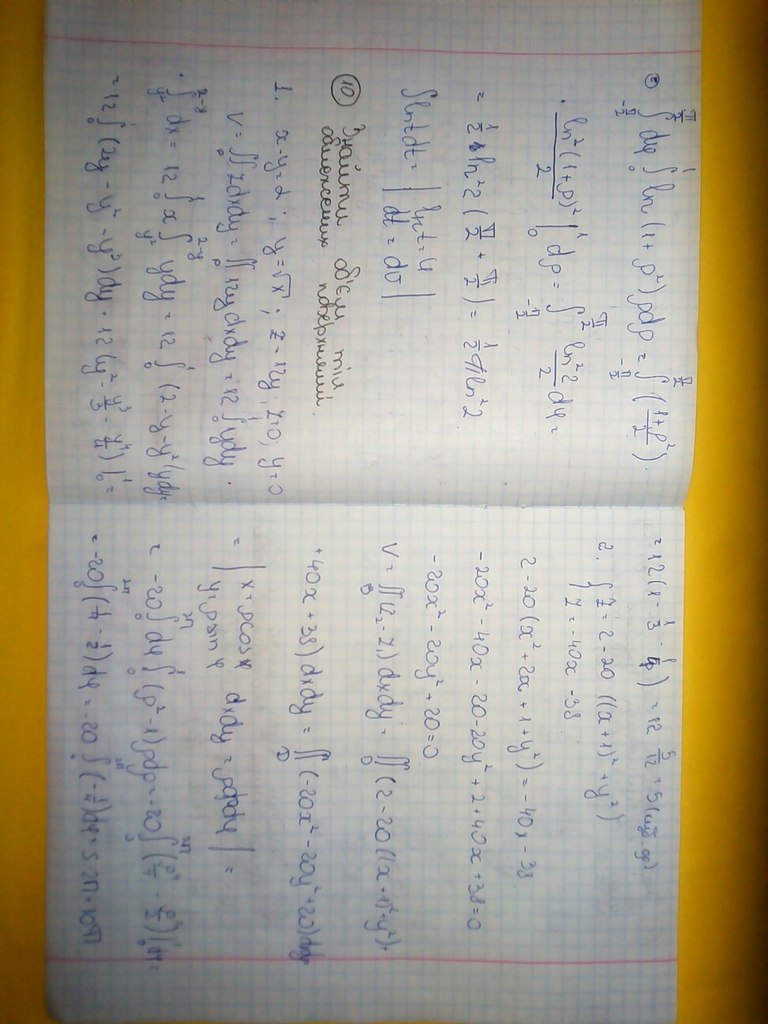 ∫_{-π/2}^{π/2} dφ ∫_0^1 ln(1+ρ²)ρdρ = ∫_{-π/2}^{π/2} (1+ρ²)/2 ·
· ln²(1+ρ)²/2 |_0^1 dρ = ∫_{-π/2}^{π/2} ln²2/2 dφ =
= 1/2 ln²2 (π/2 + π/2) = 1/2 π ln²2
∫ln t dt = | ln t = u
dt = dv |
⑩ Знайти об'єм тіл
обмежених поверхнями.
1. x-y=2; y=√x; z=12y; z=0; y=0
V = ∬ zdxdy = ∬ 12ydxdy = 12 ∫_0^1 ydy ·
· ∫_{y²}^{2-y} dx = 12 ∫_0^1 x ∫_{y²}^{2-y} ydy = 12 ∫_0^1 (2-y-y²)ydy =
= 12 ∫_0^1 (2y - y² - y³)dy = 12 (y² - y³/3 - y⁴/4) |_0^1 =
= 12 (1 - 1/3 - 1/4) = 12 5/12 = 5
2. { z = 2-20((x+1)²+y²)
z = -40x-38
2-20(x²+2x+1+y²) = -40x-38
-20x²-40x-20-20y²+2+40x+38=0
-20x²-20y²+20=0
V = ∬_D (z₂-z₁)dxdy = ∬_D (2-20((x+1)²+y²)+
+40x+38)dxdy = ∬_D (-20x²-20y²+20)dxdy=
= | x=ρcosφ
y=ρsinφ dxdy=ρdρdφ | =
= -20 ∫_0^{2π} dφ ∫_0^1 (ρ²-1)ρdρ = -20 ∫_0^{2π} (ρ⁴/4 - ρ²/2) |_0^1 dφ =
= -20 ∫_0^{2π} (1/4 - 1/2)dφ = -20 ∫_0^{2π} (-1/4)dφ = 5 2π = 10π